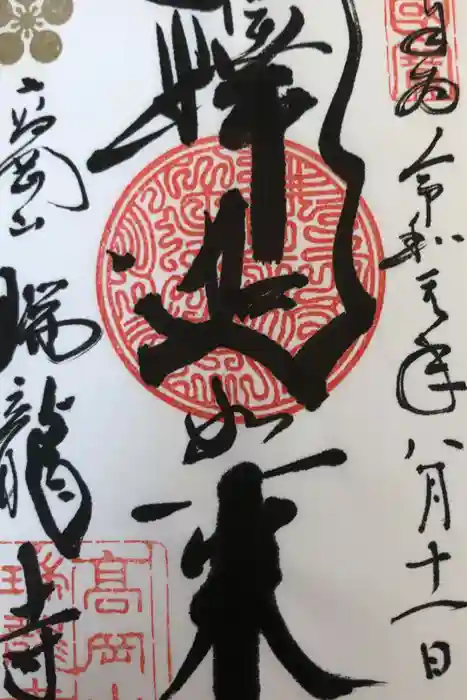 令和元年八月十八日
釋迦如来
高岡山 瑞龍寺
高岡山
瑞龍寺